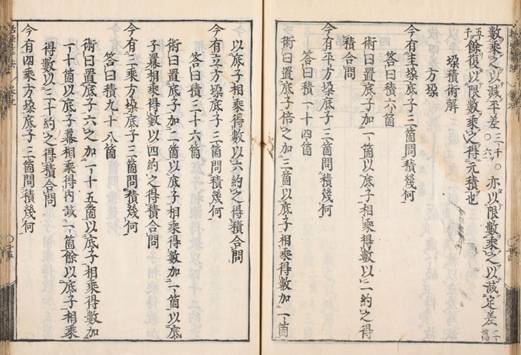 數乘之以減平差亦以限數乘之以減定差
餘復以限數乘之得元積也
垛積術解
方垛
今有圭垛底子三箇問積幾何
答曰積六箇
術曰置底子加一箇以底子相乘得數以二約之得
積合問
今有平方垛底子三箇問積幾何
答曰積一十四箇
術曰置底子倍之加三箇以底子相乘得數加一箇
以底子相乘得數以六約之得積合問
今有立方垛底子三箇問積幾何
答曰積三十六箇
術曰置底子加二箇以底子相乘得數加一箇以底
子冪相乘得數以四約之得積合問
今有三乘方垛底子三箇問積幾何
答曰積九十八箇
術曰置底子六之加一十五箇以底子相乘得數加
一十箇以底子冪相乘得內減一箇餘以底子相乘
得數以三十約之得積合問
今有四乘方垛底子三箇問積幾何